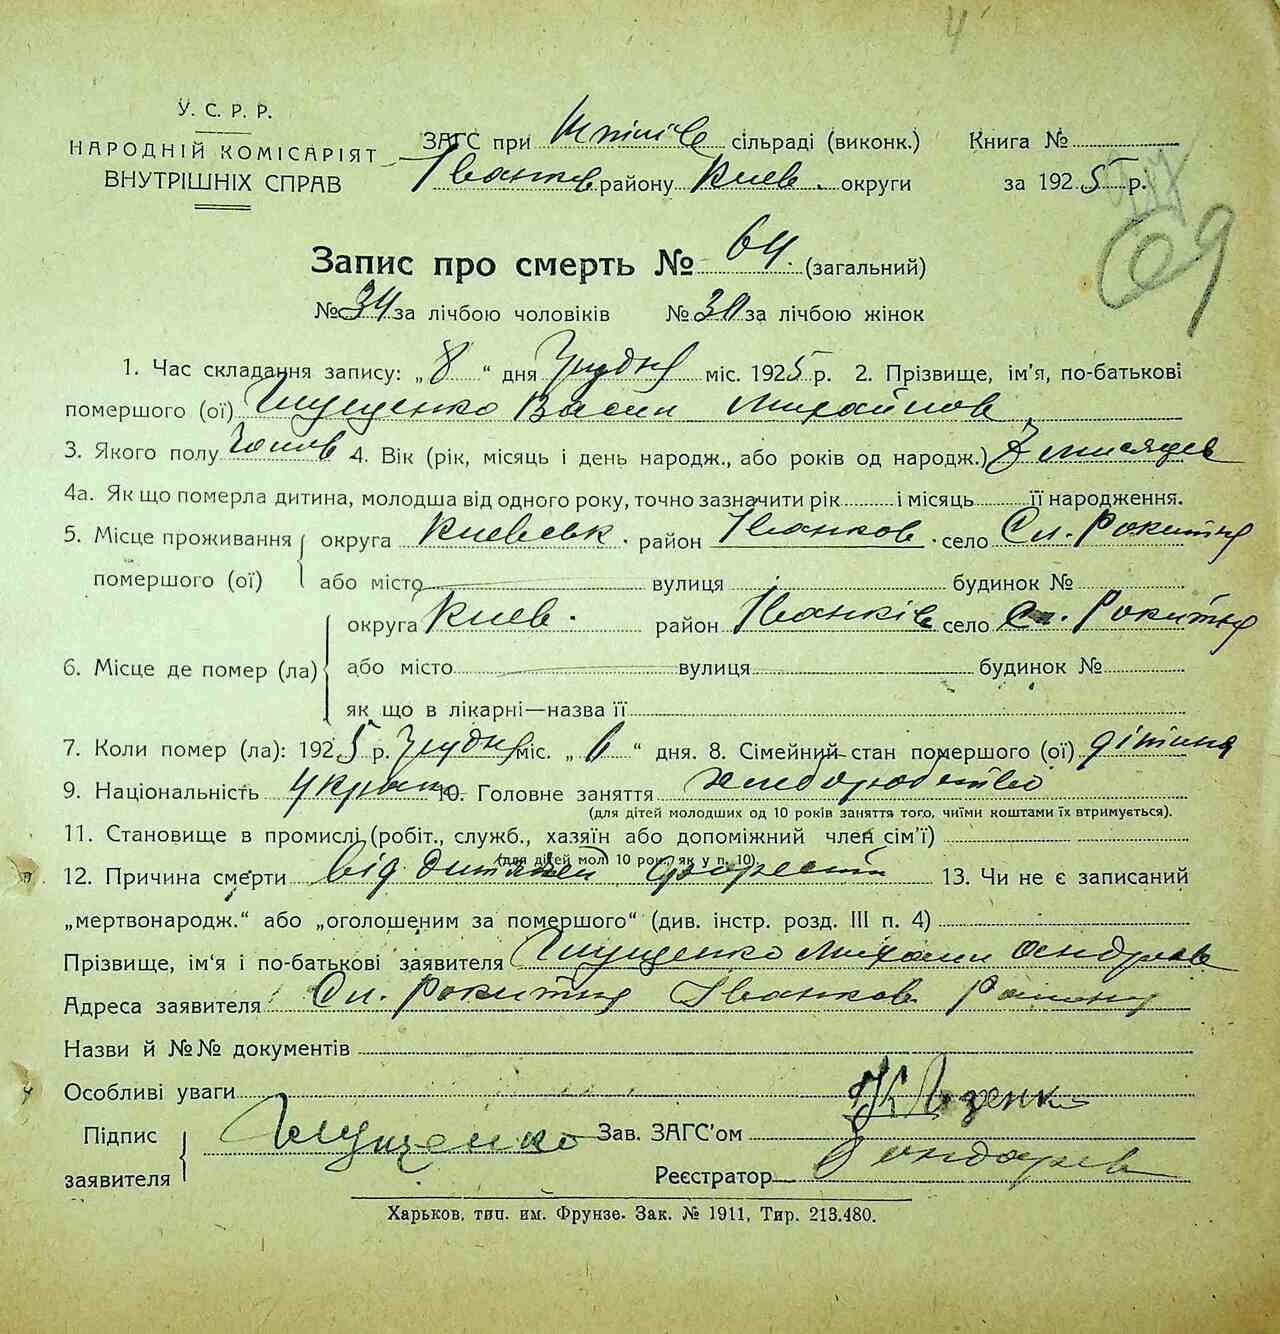 4
У. С. Р. Р.
НАРОДНІЙ КОМІСАРІЯТ
ВНУТРІШНІХ СПРАВ
ЗАГС при сільраді (виконк.) Книга №
Іванков району Киев. округи за 1925 р.
69
Запис про смерть № 64. (загальний)
№ 34 за лічбою чоловіків № 30 за лічбою жінок
1. Час складання запису: „8“ дня Грудня міс. 1925 р. 2. Прізвище, ім'я, по-батькові
помершого (ої) Глущенко Васил Михайлов
3. Якого полу Чолов 4. Вік (рік, місяць і день народж., або років од народж.) місяцев
4а. Як що померла дитина, молодша від одного року, точно зазначити рік і місяць її народження.
5. Місце проживання помершого (ої) округа Киевськ. район Іванков. село Сл. Рокитня
або місто вулиця будинок №
6. Місце де помер (ла) округа Киев. район Іванків село Сл. Рокитня
або місто вулиця будинок №
як що в лікарні—назва її
7. Коли помер (ла): 1925 р. Грудня міс. „6“ дня. 8. Сімейний стан помершого (ої) дітиня
9. Національність Украин 10. Головне заняття хлиборобство
(для дітей молодших од 10 років заняття того, чиїми коштами їх втримується).
11. Становище в промислі (робіт., служб., хазяїн або допоміжний член сім'ї)
(для дітей мол. 10 рок., як у п. 10)
12. Причина смерти від 13. Чи не є записаний
„мертвонародж.“ або „оголошеним за помершого“ (див. інстр. розд. III п. 4)
Прізвище, ім'я і по-батькові заявителя Глущенко Михаил Андреев
Адреса заявителя Сл. Рокитня Іванков Району
Назви й №№ документів
Особливі уваги
Підпис заявителя Глущенко Зав. ЗАГС'ом
Реєстратор Бондарев
Харьков, тип. им. Фрунзе. Зак. № 1911, Тир. 213.480.